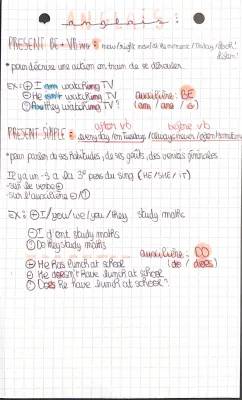 anglais:
PRESENT BE + VB ING : now/right now/at the moment/today/look!
listen!
*pour décrire une action en train de se dérouler.
EX: ⊕ I am watching TV
⊖ He isn't watching TV auxiliaire: BE
? they watching TV? (am/are/is)
after vb before vb
PRESENT SIMPLE: every day/on Tuesday/always/never/often/sometimes
*pour parler de ses habitudes, de ses goûts, des vérités générales.
Il y a un -s à la 3e pers du sing (HE/SHE/IT)
-sur le verbe ⊕
-sur l'auxiliaire ⊖/?
EX: ⊕ I/you/we/they study maths
⊖ I don't study maths
? Do they study maths auxiliaire: DO
⊕ He has lunch at school (do/does)
⊖ He doesn't have lunch at school
? Does he have lunch at school?